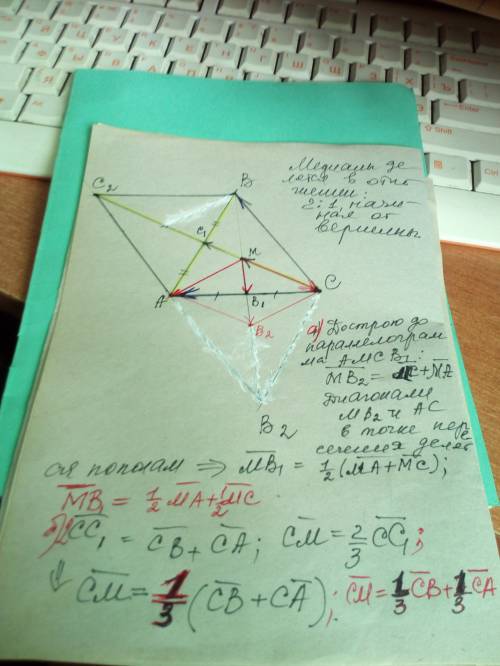 Медианы де
лятся в отно
шении:
2:1, начи-
ная от
вершины
C₂
B
C₁
M
A
B₁
C
B₂
B₂
а) Дострою до
параллелограм
ма AMCB₂:
MB₂ = MC + MA
Диагонали
MB₂ и AC
в точке пере
сечения делят
ся пополам ⇒ MB₁ = 1/2 (MA + MC);
MB₁ = 1/2 MA + 1/2 MC
б) 2CC₁ = CB + CA; CM = 2/3 CC₁;
⇓ CM = 1/3 (CB + CA); CM = 1/3 CB + 1/3 CA